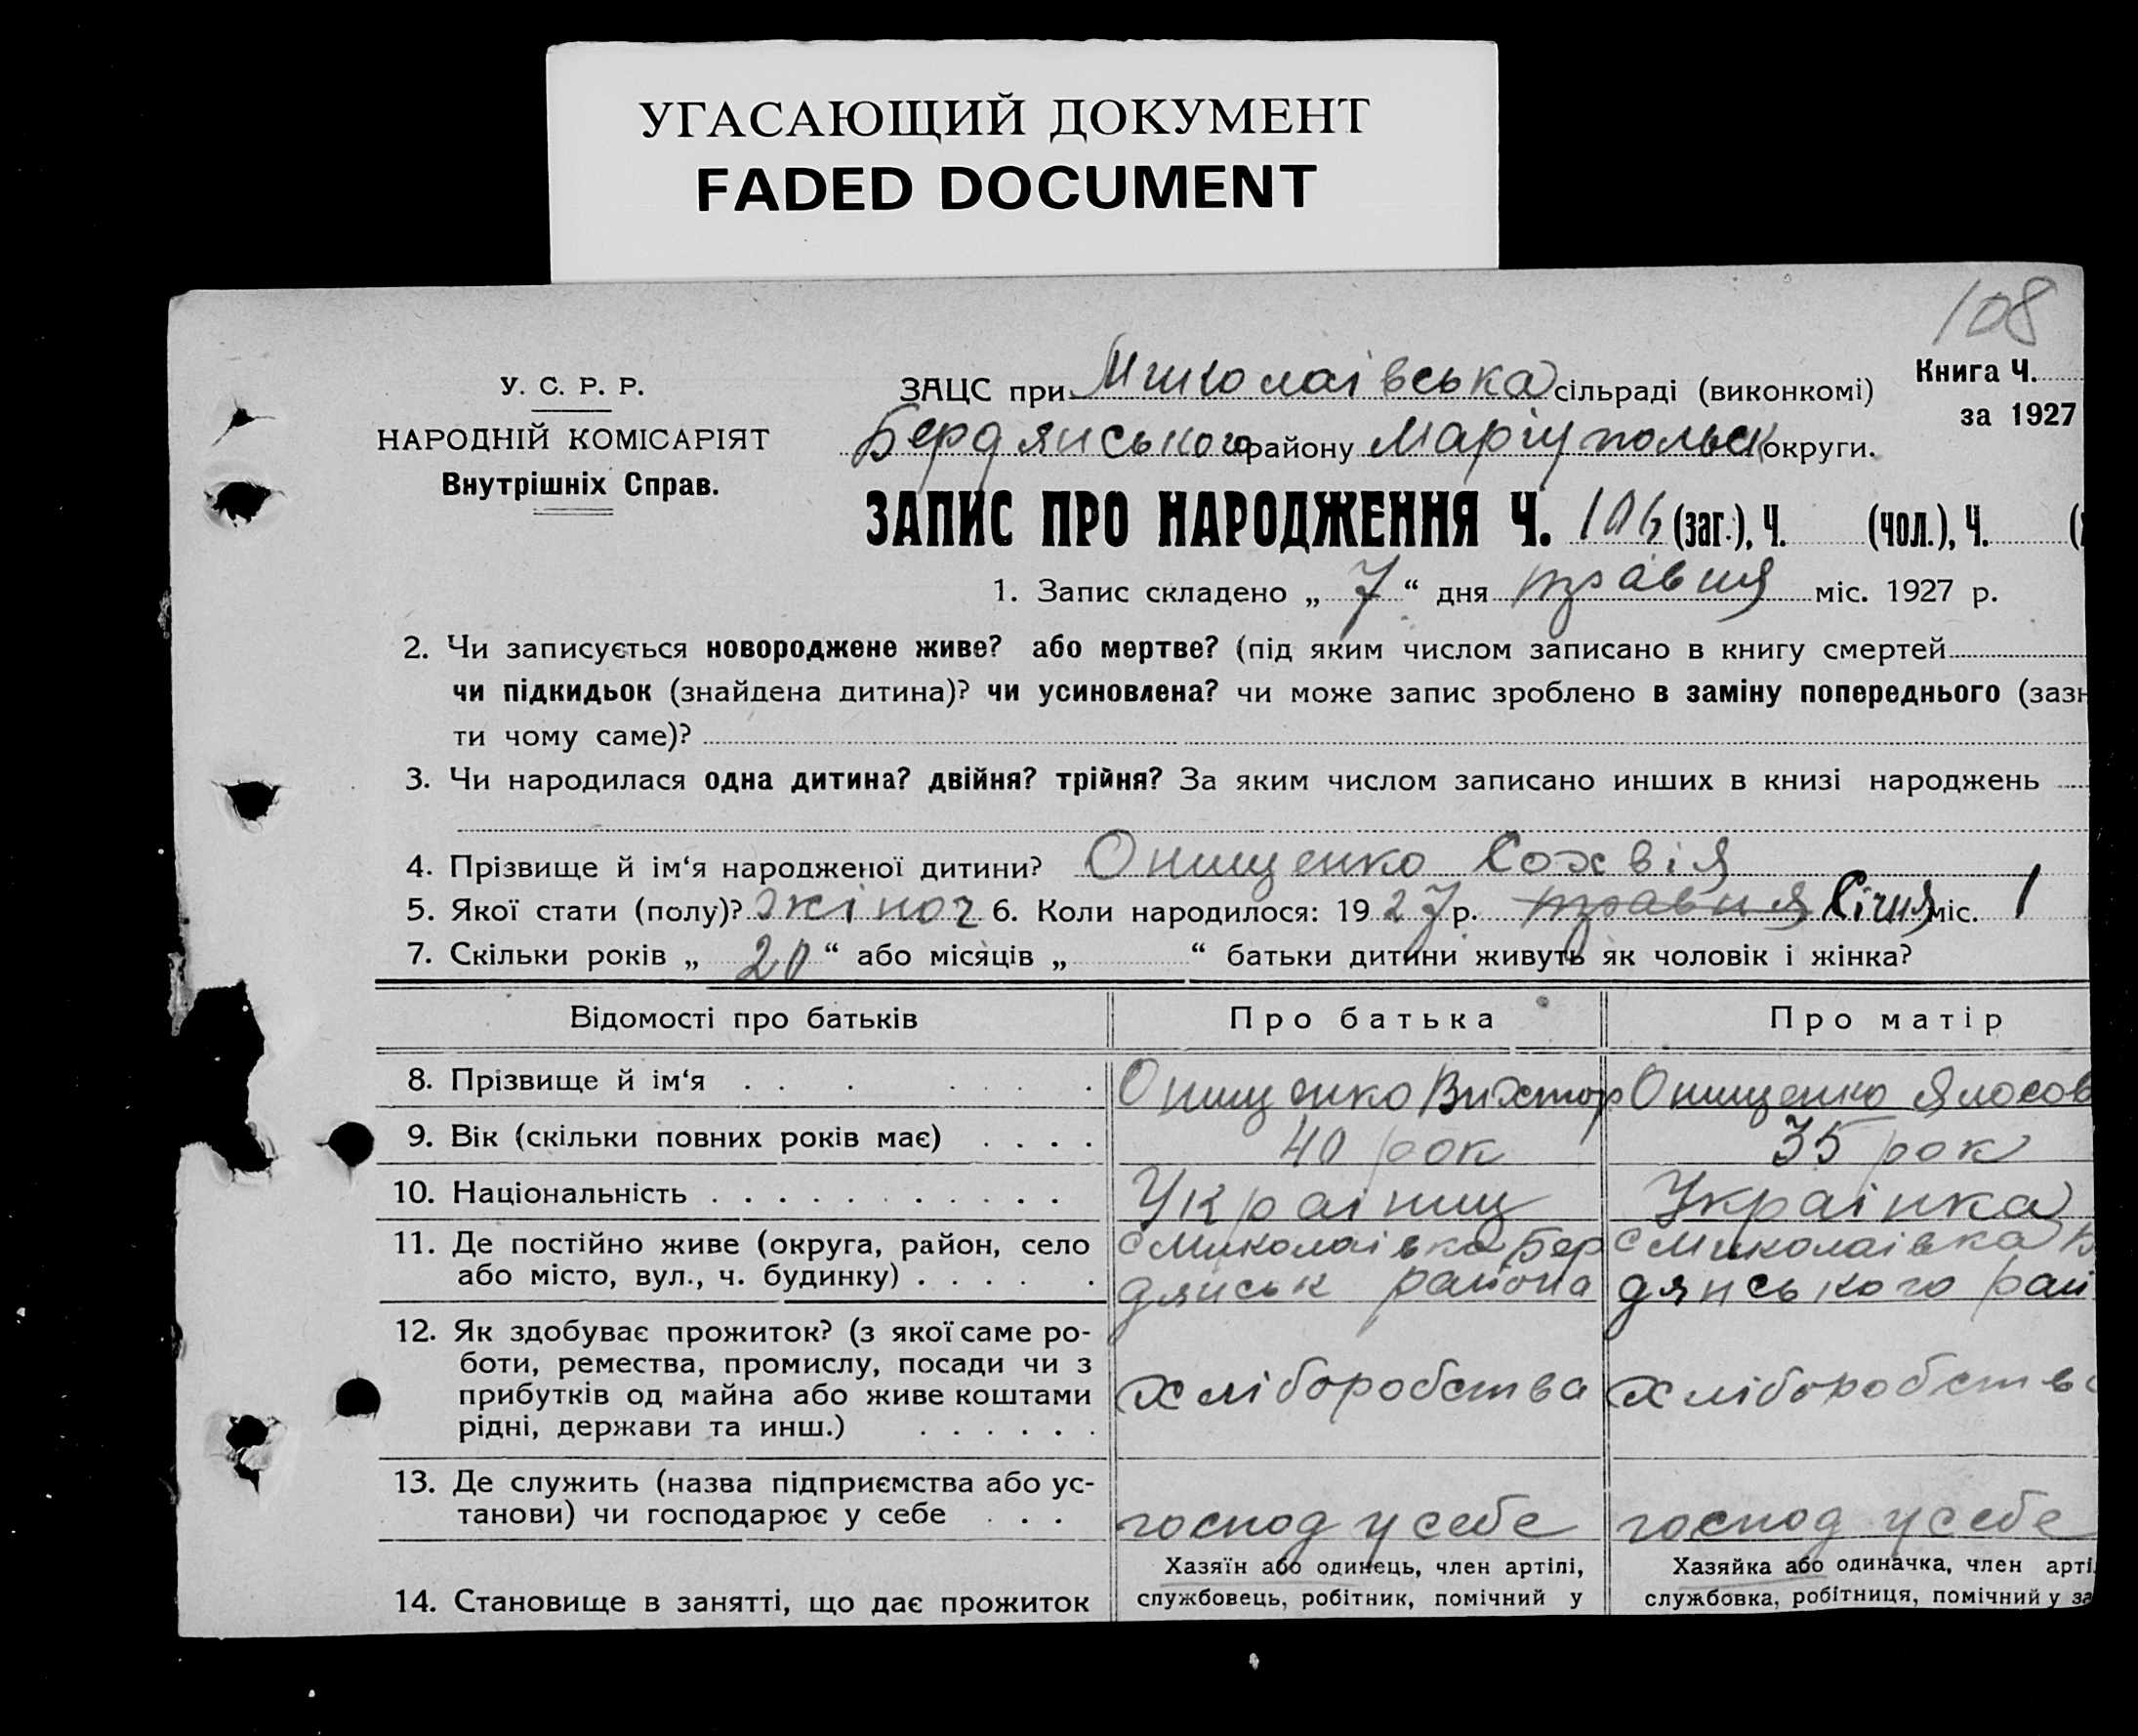 УГАСАЮЩИЙ ДОКУМЕНТ
FADED DOCUMENT
108
У. С. Р. Р.
НАРОДНІЙ КОМІСАРІЯТ
Внутрішніх Справ.
ЗАЦС при Миколаівська сільраді (виконкомі)
Бердянського району Маріупольськ округи.
Книга Ч.
за 1927
ЗАПИС ПРО НАРОДЖЕННЯ Ч. 106 (заг.), Ч. (чол.), Ч.
1. Запис складено „ 7 “ дня травня міс. 1927 р.
2. Чи записується новороджене живе? або мертве? (під яким числом записано в книгу смертей
чи підкидьок (знайдена дитина)? чи усиновлена? чи може запис зроблено в заміну попереднього (заз
ти чому саме)?
3. Чи народилася одна дитина? двійня? трійня? За яким числом записано инших в книзі народжень
4. Прізвище й ім‘я народженої дитини? Онищенко Сохвія
5. Якої стати (полу)? жіноч 6. Коли народилося: 1927 р. травня Січня міс. 1
7. Скільки років „ 20 “ або місяців „ “ батьки дитини живуть як чоловік і жінка?
Відомості про батьків Про батька Про матір
8. Прізвище й ім‘я Онищенко Вихтор Онищенко
9. Вік (скільки повних років має) 40 рок 35 рок
10. Національність Украінщ Украінка
11. Де постійно живе (округа, район, село с Миколаівка Бер с Миколаівка
або місто, вул., ч. будинку) дянськ района дянського рай
12. Як здобуває прожиток? (з якої саме ро-
боти, ремества, промислу, посади чи з
прибутків од майна або живе коштами хліборобства хліборобств
рідні, держави та инш.)
13. Де служить (назва підприємства або ус-
танови) чи господарює у себе господ у себе господ у себе
Хазяїн або одинець, член артілі, Хазяйка або одиначка, член арті
14. Становище в занятті, що дає прожиток службовець, робітник, помічний у службовка, робітниця, помічний у за